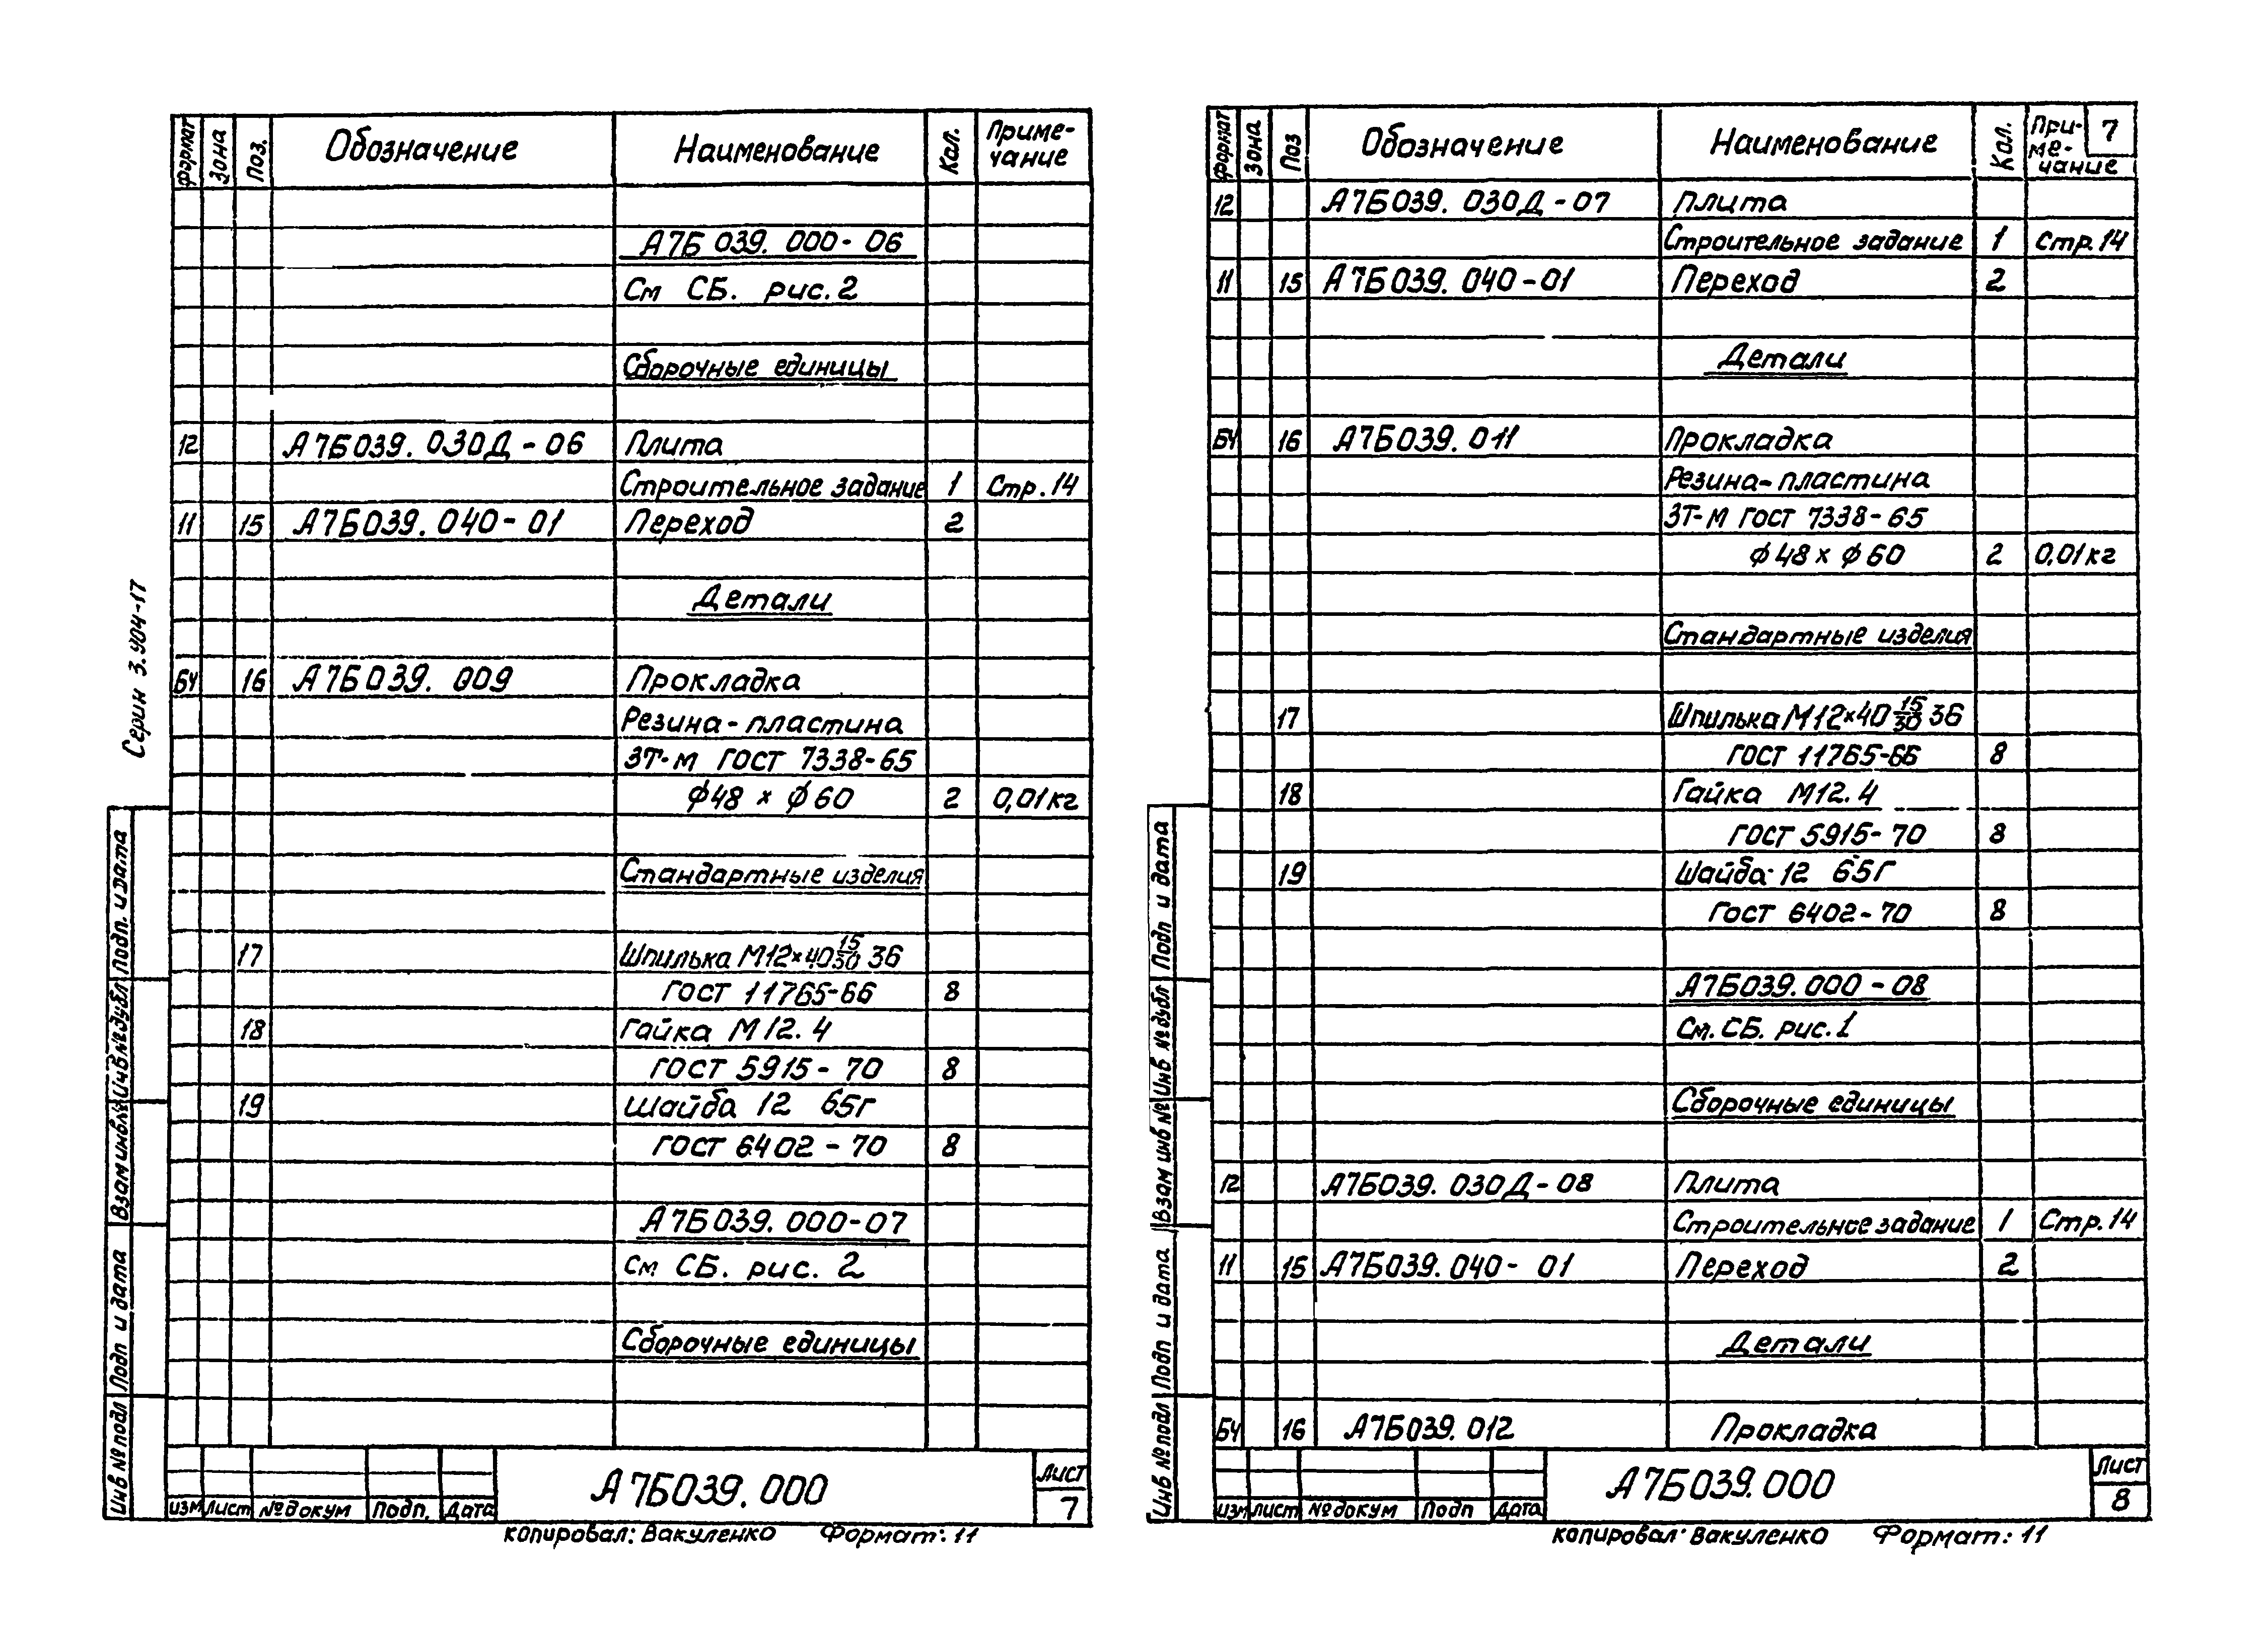 Серия 3.904-17
Формат Зона Поз. Обозначение Наименование Кол. Приме-
чание
А7Б039.000-06
См СБ. рис.2
Сборочные единицы
12 А7Б039.030Д-06 Плита
Строительное задание 1 Стр.14
11 15 А7Б039.040-01 Переход 2
Детали
БЧ 16 А7Б039.009 Прокладка
Резина-пластина
3Т-м ГОСТ 7338-65
ф48 х ф60 2 0,01кг
Стандартные изделия
17 Шпилька М12×40 15/30 36
ГОСТ 11765-66 8
18 Гайка М12.4
ГОСТ 5915-70 8
19 Шайба 12 65Г
ГОСТ 6402-70 8
А7Б039.000-07
См СБ. рис. 2
Сборочные единицы
Инв № подл Подп и дата Взам инв № Инв № дубл Подп. и дата
изм лист № докум Подп. Дата
А7Б039.000
Лист
7
копировал: Вакуленко Формат: 11
Формат Зона Поз Обозначение Наименование Кол. При-
ме-
чание
7
12 А7Б039.030Д-07 Плита
Строительное задание 1 Стр.14
11 15 А7Б039.040-01 Переход 2
Детали
БЧ 16 А7Б039.011 Прокладка
Резина-пластина
3Т-м ГОСТ 7338-65
ф48 х ф60 2 0,01кг
Стандартные изделия
17 Шпилька М12×40 15/30 36
ГОСТ 11765-66 8
18 Гайка М12.4
ГОСТ 5915-70 8
19 Шайба 12 65Г
ГОСТ 6402-70 8
А7Б039.000-08
См. СБ. рис.1
Сборочные единицы
12 А7Б039.030Д-08 Плита
Строительное задание 1 Стр.14
11 15 А7Б039.040-01 Переход 2
Детали
БЧ 16 А7Б039.012 Прокладка
Инв № подл Подп и дата Взам инв № Инв № дубл Подп и дата
изм лист № докум Подп Дата
А7Б039.000
Лист
8
копировал: Вакуленко Формат: 11